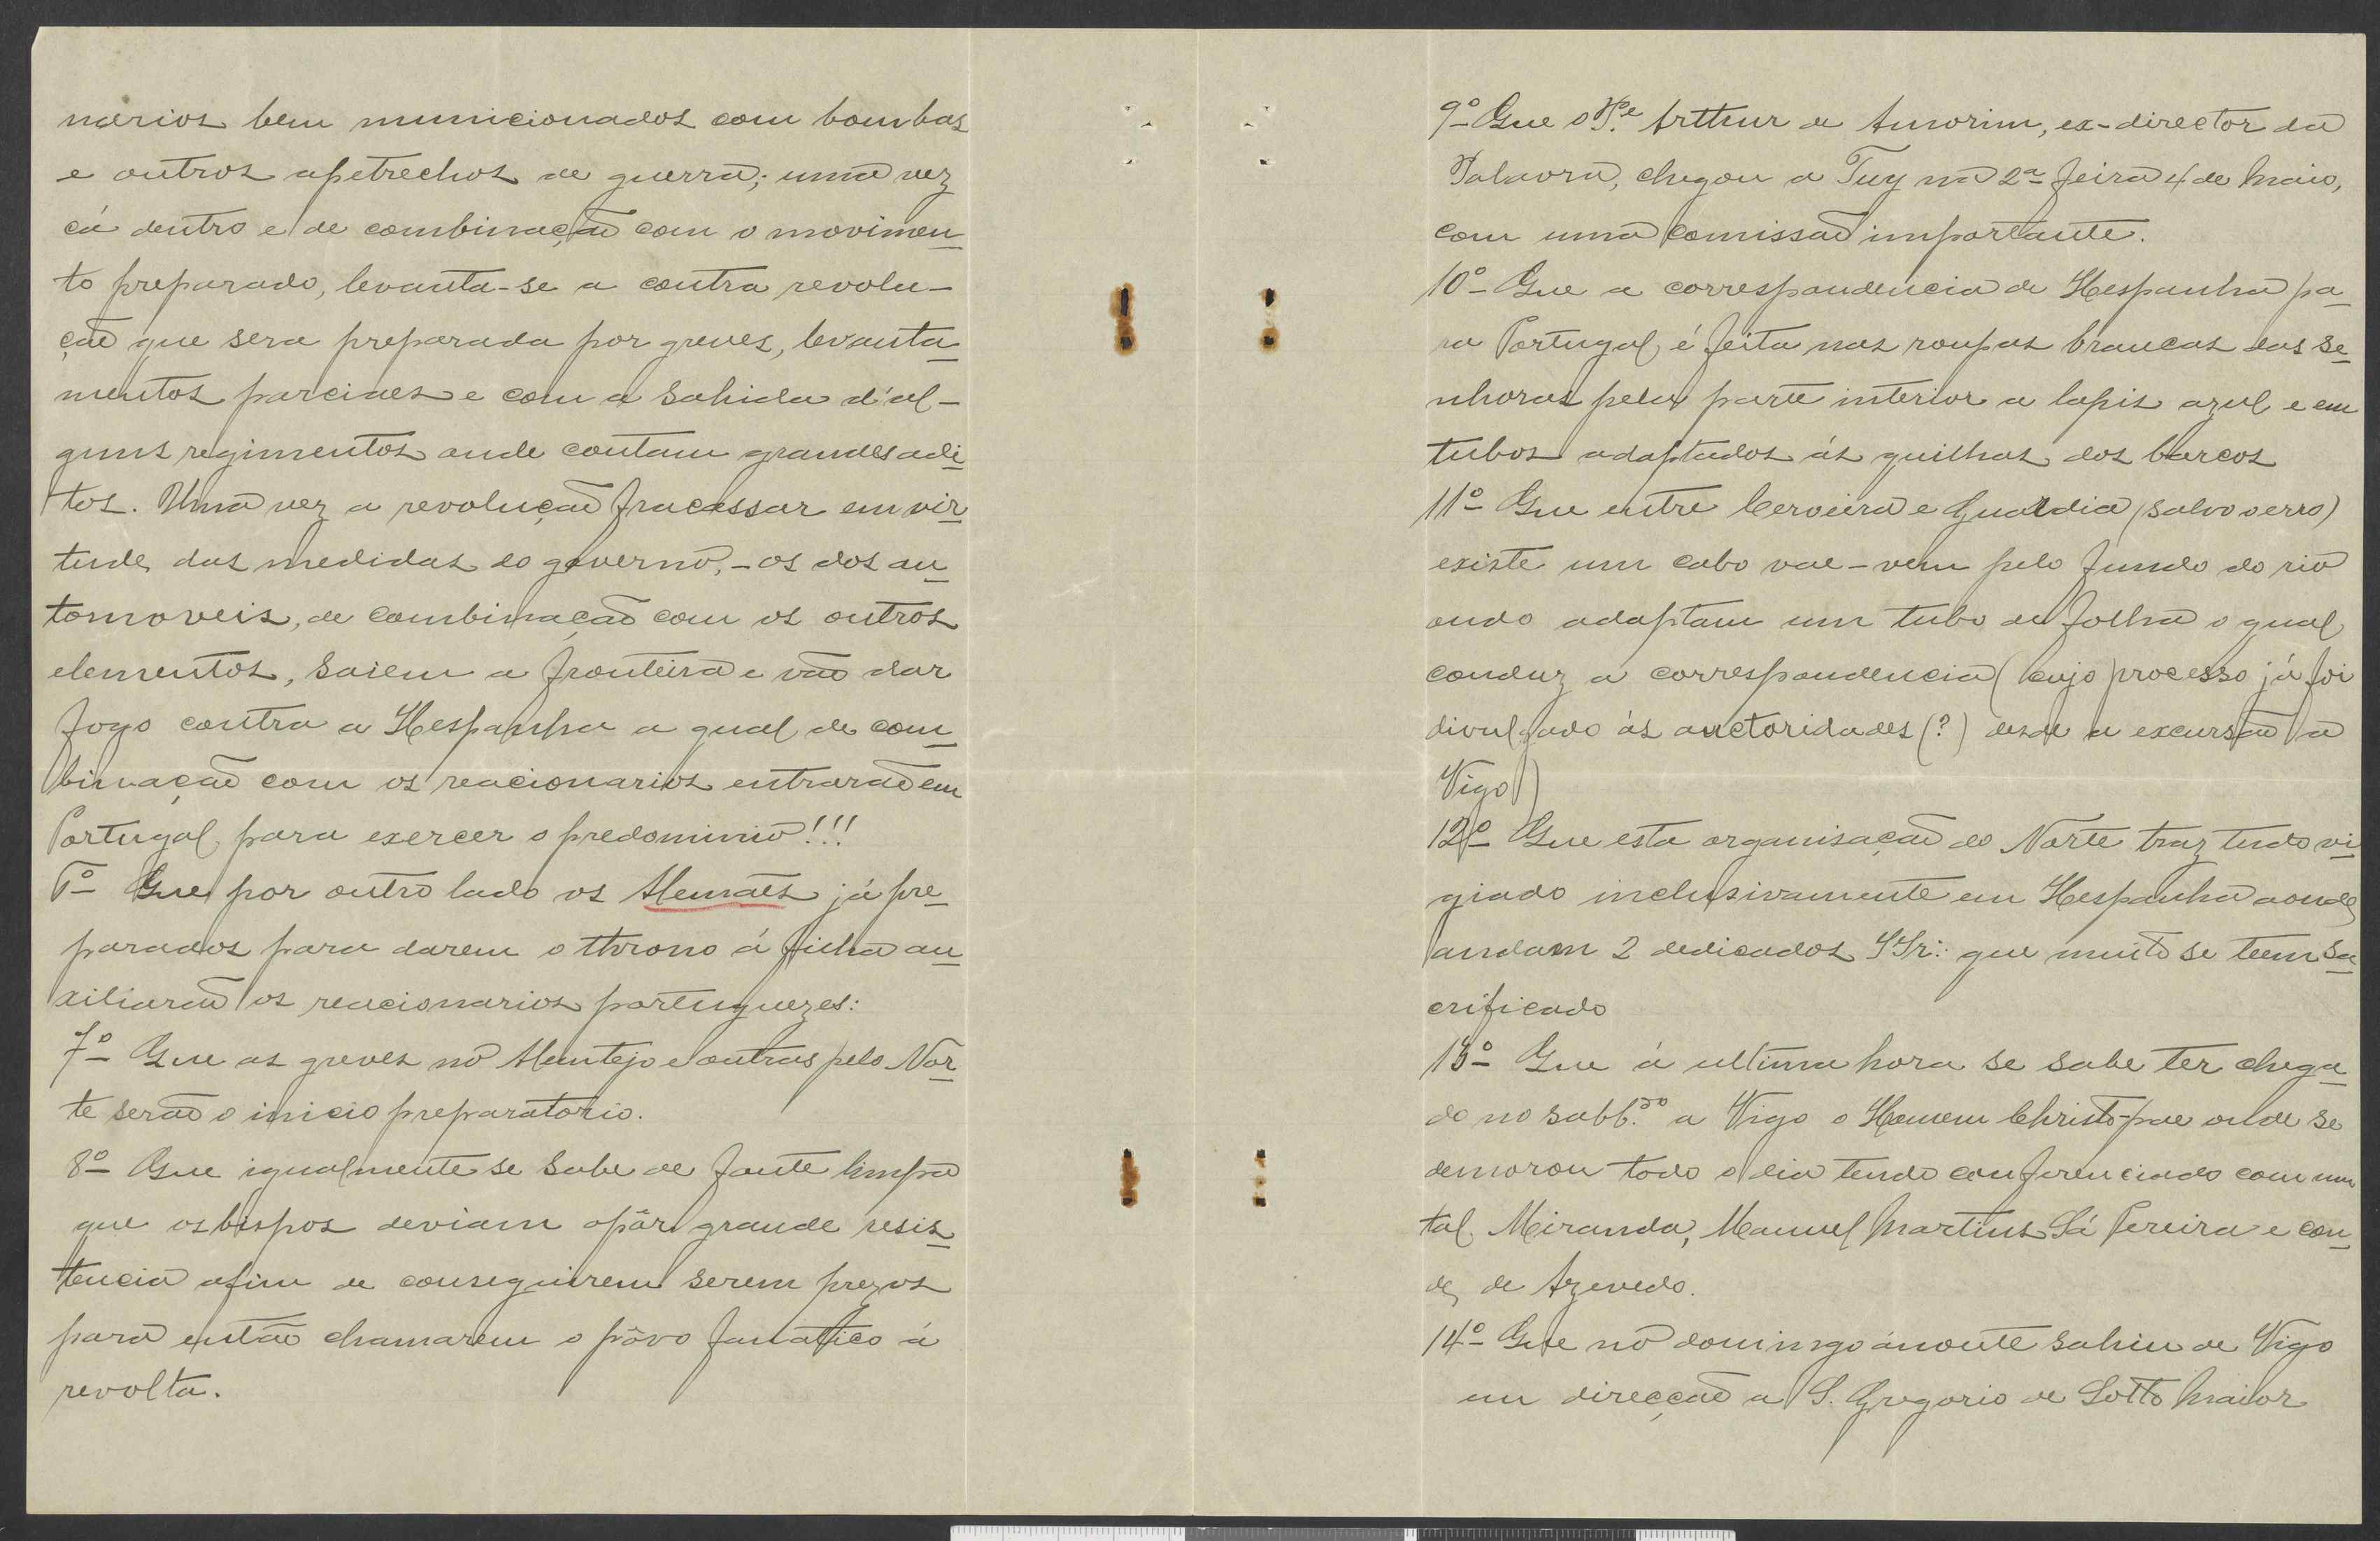 narios bem municionados com bombas
e outros apetrechos de guerra; uma vez
cá dentro e de combinação com o movimen-
to preparado, levanta-se a contra revolu-
ção que sera preparada por greves, levanta-
mentos parciaes e com a sahida d'al-
guns regimentos onde contam grandes adi-
tos. Uma vez a revolução fracassar em vir-
tude das medidas do governo, - os dos au-
tomoveis, de combinação com os outros
elementos, saiem a fronteira e vão dar
fogo contra a Hespanha a qual de com-
binação com os reacionarios entrarão em
Portugal para exercer o predominio!!!
6º Que por outro lado os Alemães já pre-
parados para darem o throno á filha au-
xiliarão os reacionarios portuguezes:
7º Que as greves no Alentejo e outras pelo Nor-
te serão o inicio preparatorio.
8º Que igualmente se sabe de fonte limpa
que os bispos deviam opôr grande resis-
tencia afim de conseguirem serem prezos
para então chamarem o pôvo fanatico á
revolta.
9º Que o Pe. Artthur de Amorim, ex-director da
Palavra, chegou a Tuy na 2ª feira 4 de Maio,
com uma comissão importante.
10º Que a correspondencia de Hespanha pa-
ra Portugal é feita nas roupas brancas das se-
nhoras pela parte interior a lapis azul e em
tubos adaptados ás quilhas dos barcos
11º Que entre Cerveira e Guardia (salvo o erro)
existe um cabo vae-vem pelo fundo do rio
ondo adaptam um tubo de folha o qual
conduz a correspondencia (cujo processo já foi
divulgado ás auctoridades (?) desde a excursão a
Vigo)
12º Que esta organisação do Norte traz tudo vi-
giado inclusivamente em Hespanha aonde
andam 2 dedicados IIr∴ que muito se teem sa-
crificado
13º Que á ultima hora se sabe ter chega-
do no sabb.do a Vigo o Homem Christo-pae onde se
demorou todo o dia tendo conferenciado com um
tal Miranda, Manuel Martins Sá Pereira e con-
de de Azevedo.
14º Que no domingo ánoute sahiu de Vigo
em direcção a S. Gregorio de Sotto Maior